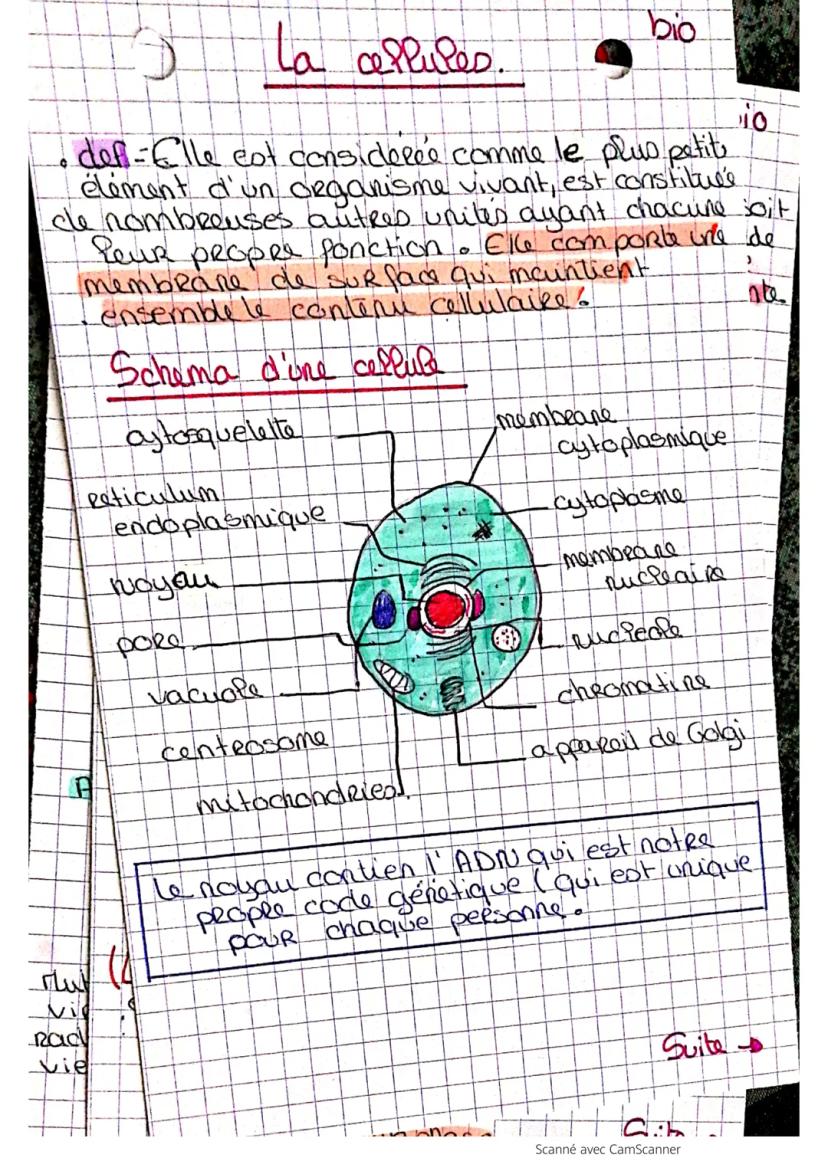 bio
La cellules.
io
. def = Elle est considérée comme le plus petit
élément d'un organisme vivant, est constituée
de nombreuses autres unités ayant chacune
oit
leur propre fonction. Elle comporte une
de
membrane de surface qui maintient
ensemble le contenu cellulaire.
te.
Schema d'une cellule
cytosquelette
membrane
cytoplasmique
reticulum
endoplasmique
cytoplasme
noyau
membrane
nucleaire
pore
nucleole
vacuole
chromatine
centrosome
appareil de Golgi
mitochondries.
Le noyau contien l'ADN qui est notre
propre code génetique (qui est unique
pour chaque personne.
vie
Suite →
Scanné avec CamScanner